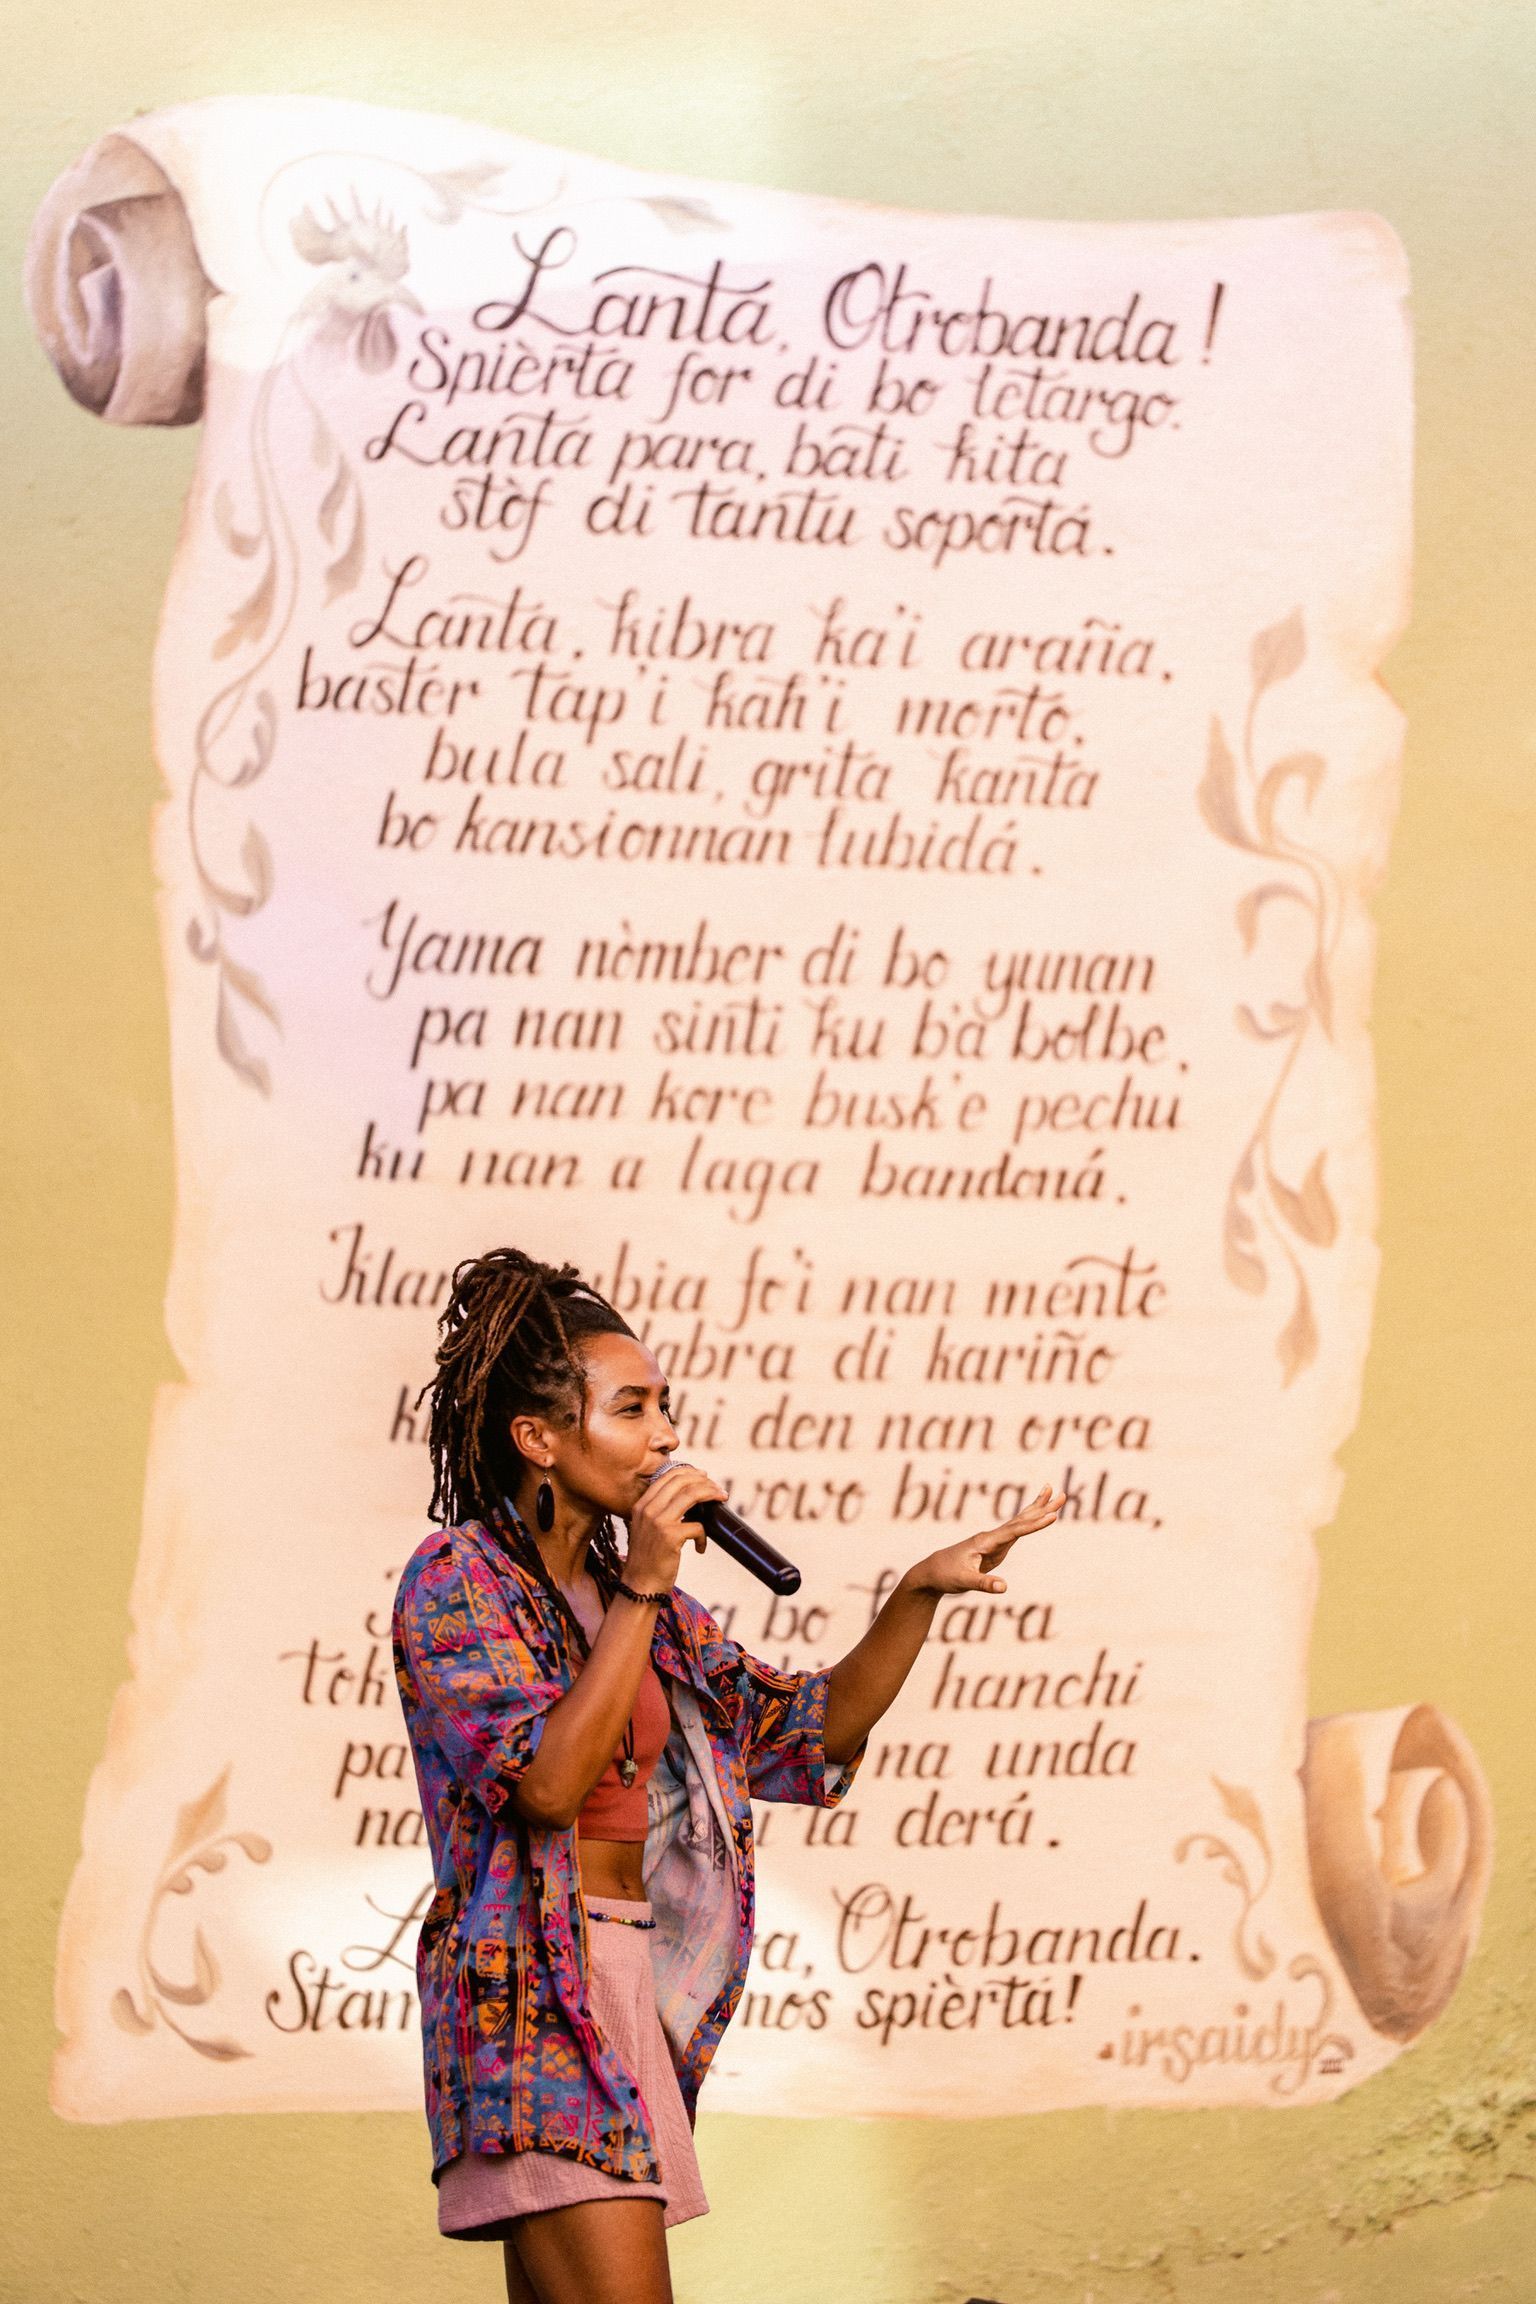 Lantá, Otrobanda!
Spièrtá for di bo letargo.
Lantá para, bati kita
stòf di tantu soportá.
Lanta, kibra ka'i araña,
bastér tap'i kah'i morto,
bula sali, grita kanta
bo kansionnan lubidá.
Yama nòmber di bo yunan
pa nan sinti ku b'a bolbe,
pa nan kore busk'e pechu
ku nan a laga bandoná.
fo'i nan mente
di kariño
den nan orea
wowo bira kla,
bo
hanchi
pa na unda
na ta derá.
Otrobanda.
nos spièrtá!
irsaidy